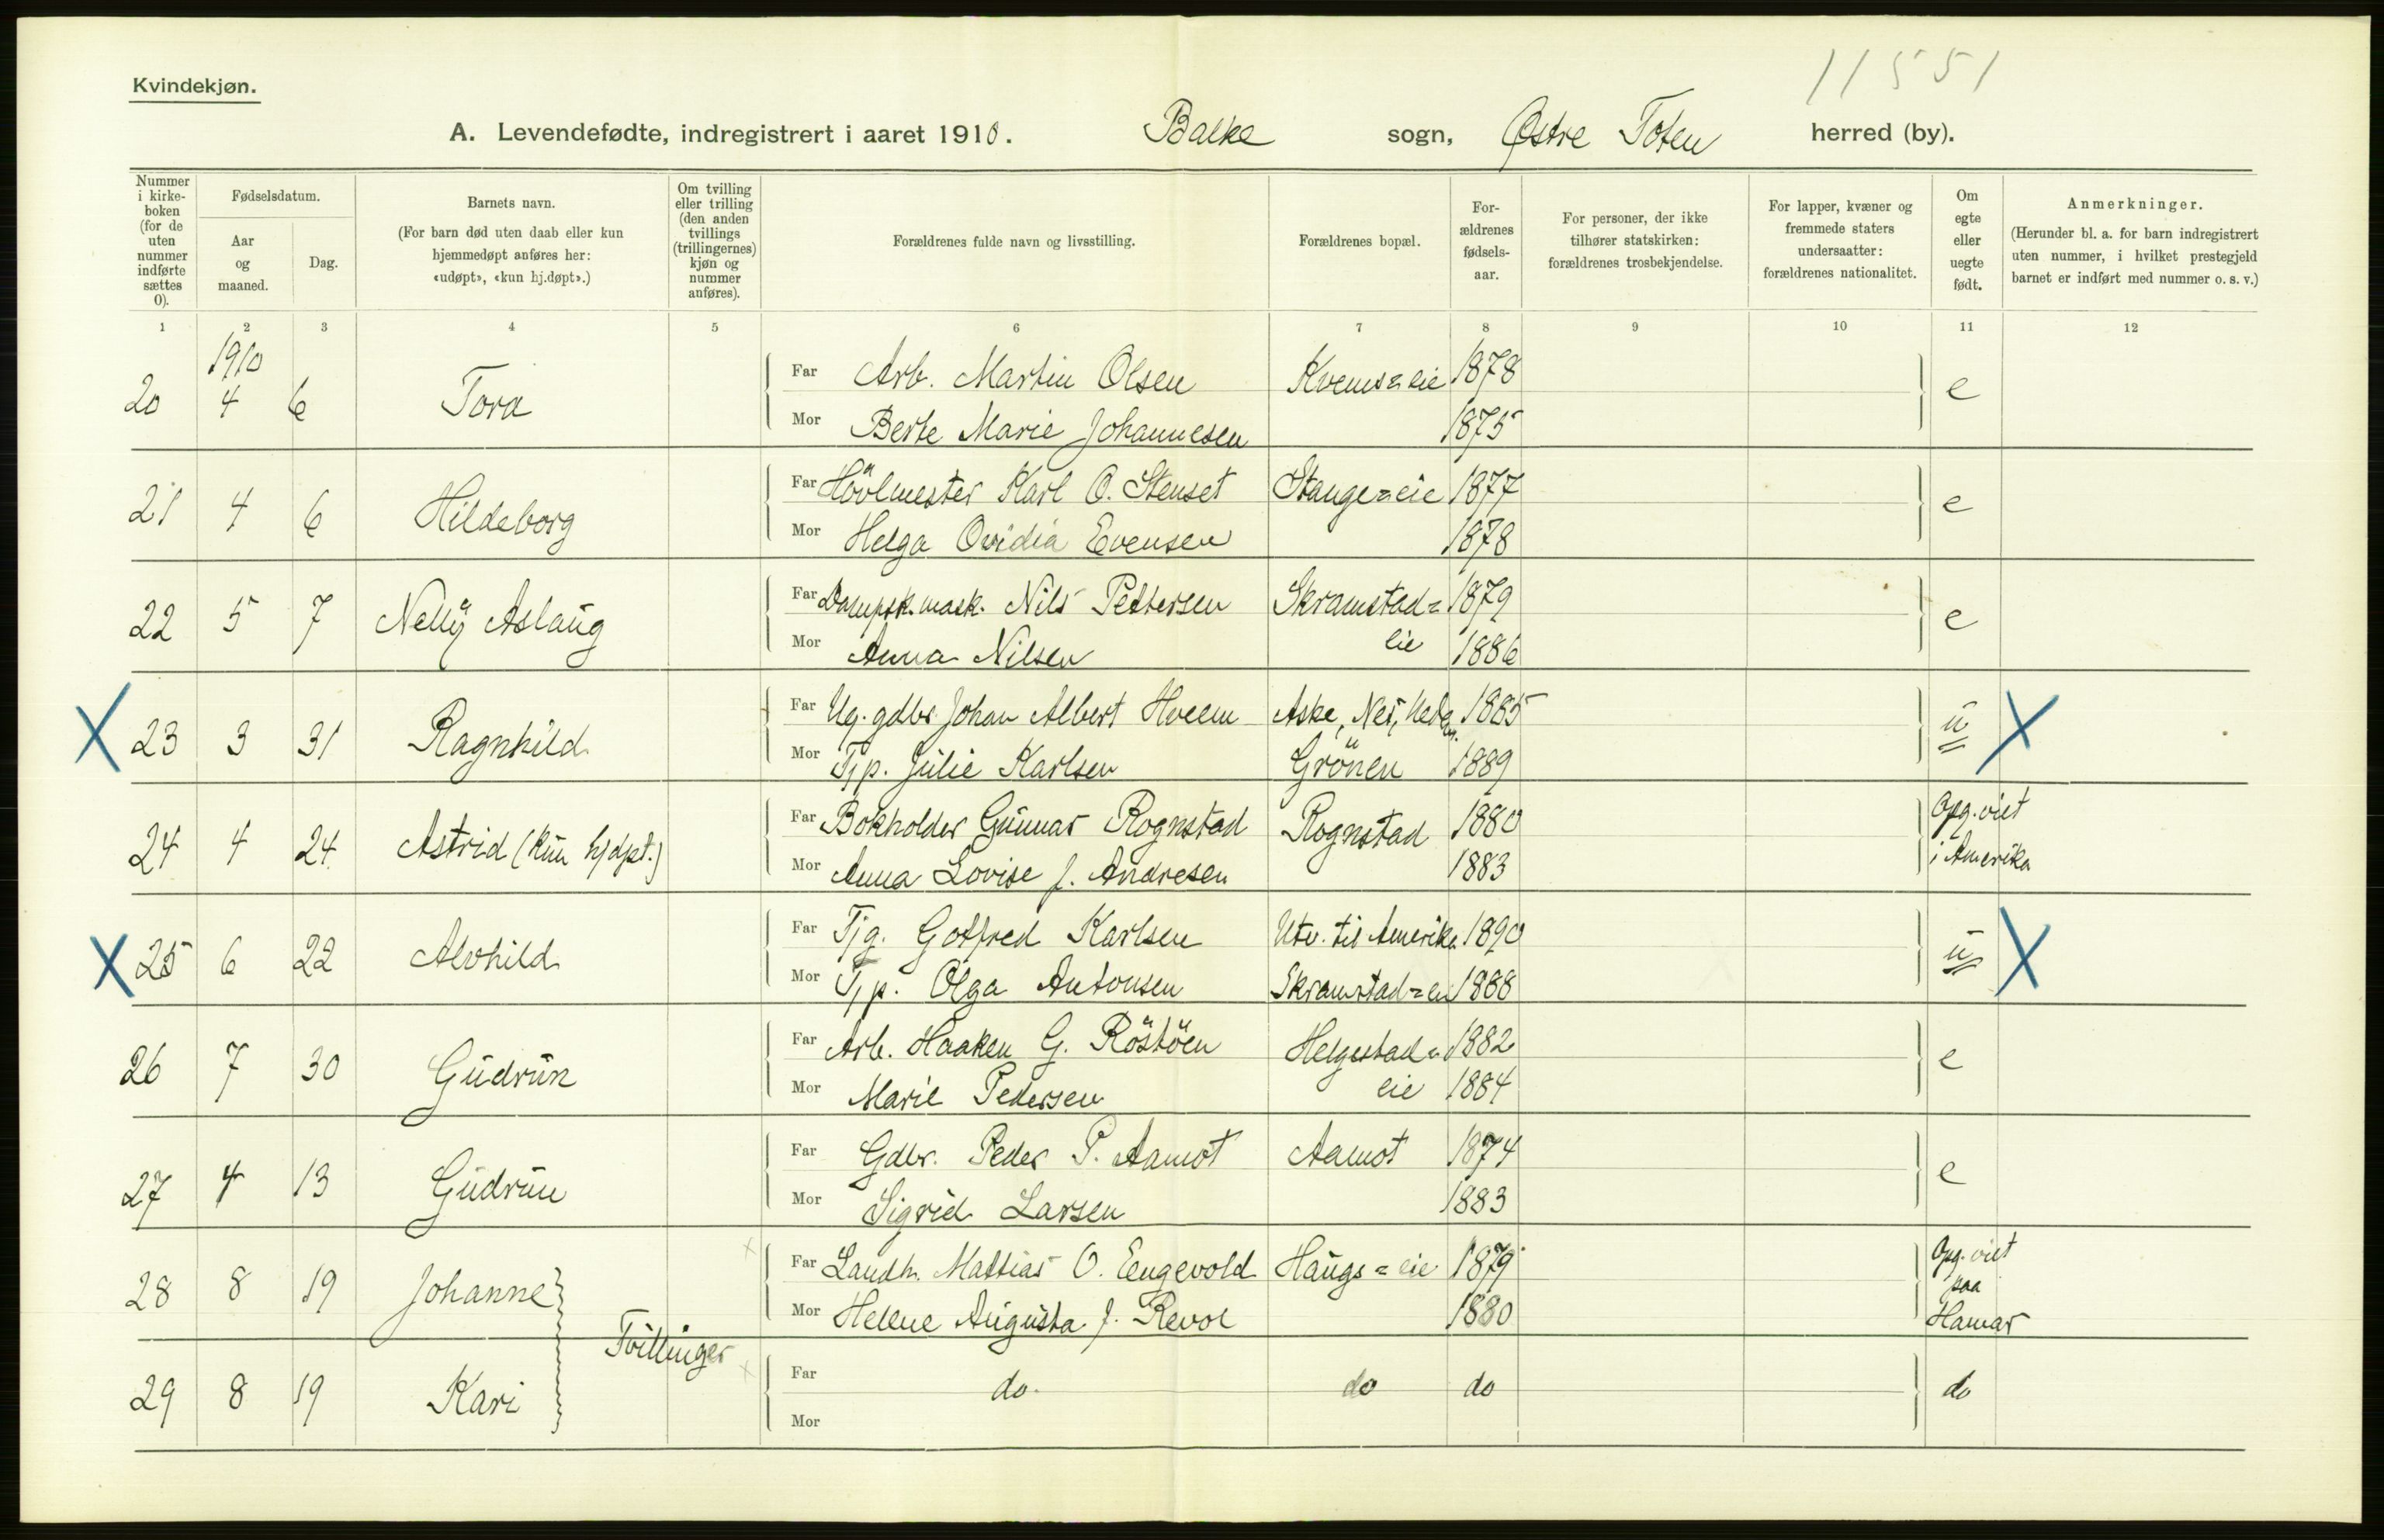 11551
Kvindekjøn.
A. Levendefødte, indregistrert i aaret 1910. Balke sogn, Østre Toten herred (by).
Nummer i kirke-boken (for de uten nummer indførte sættes 0).
Fødselsdatum.
Aar og maaned.
Dag.
Barnets navn.
(For barn død uten daab eller kun hjemmedøpt anføres her: «udøpt», «kun hj.døpt».)
Om tvilling eller trilling (den anden tvillings (trillingernes) kjøn og nummer anføres).
Forældrenes fulde navn og livsstilling.
Forældrenes bopæl.
For-ældrenes fødsels-aar.
For personer, der ikke tilhører statskirken: forældrenes trosbekjendelse.
For lapper, kvæner og fremmede staters undersaatter: forældrenes nationalitet.
Om egte eller uegte født.
Anmerkninger.
(Herunder bl. a. for barn indregistrert uten nummer, i hvilket prestegjeld barnet er indført med nummer o. s. v.)
1 2 3 4 5 6 7 8 9 10 11 12
1910
20 4 6 Tora Far Arb. Martin Olsen Kvems=eie 1878 e
Mor Berte Marie Johannesen 1875
21 4 6 Hildeborg Far Hövlmester Karl O. Stenset Stange=eie 1877 e
Mor Helga Ovidia Evensen 1878
22 5 7 Nelly Aslaug Far Dampsk.mask. Nils Pettersen Skramstad= 1879 e
Mor Anna Nilsen eie 1886
X 23 3 31 Ragnhild Far Ug. gdbr. Johan Albert Hveem Aske, Nes, Hedm. 1885 u X
Mor Tjp. Julie Karlsen Grönen 1889
24 4 24 Astrid (kun hjdpt.) Far Bokholder Gunnar Rognstad Rognstad 1880 Opg. viet
Mor Anna Lovise f. Andresen 1883 i Amerika
X 25 6 22 Alvhild Far Tjg. Gotfred Karlsen Utv. til Amerika 1890 u X
Mor Tjp. Olga Antonsen Skramstad=eie 1888
26 7 30 Gudrun Far Arb. Haaken G. Röstöen Helgestad= 1882 e
Mor Marie Pedersen eie 1884
27 4 13 Gudrun Far Gdbr. Peder P. Aamot Aamot 1874 e
Mor Sigrid Larsen 1883
28 8 19 Johanne Far Landh. Mattias O. Eengevold Haugs=eie 1879 Opg. viet
paa
Mor Helene Augusta f. Revol 1880 Hamar
Tvillinger
29 8 19 Kari Far do. do do do
Mor